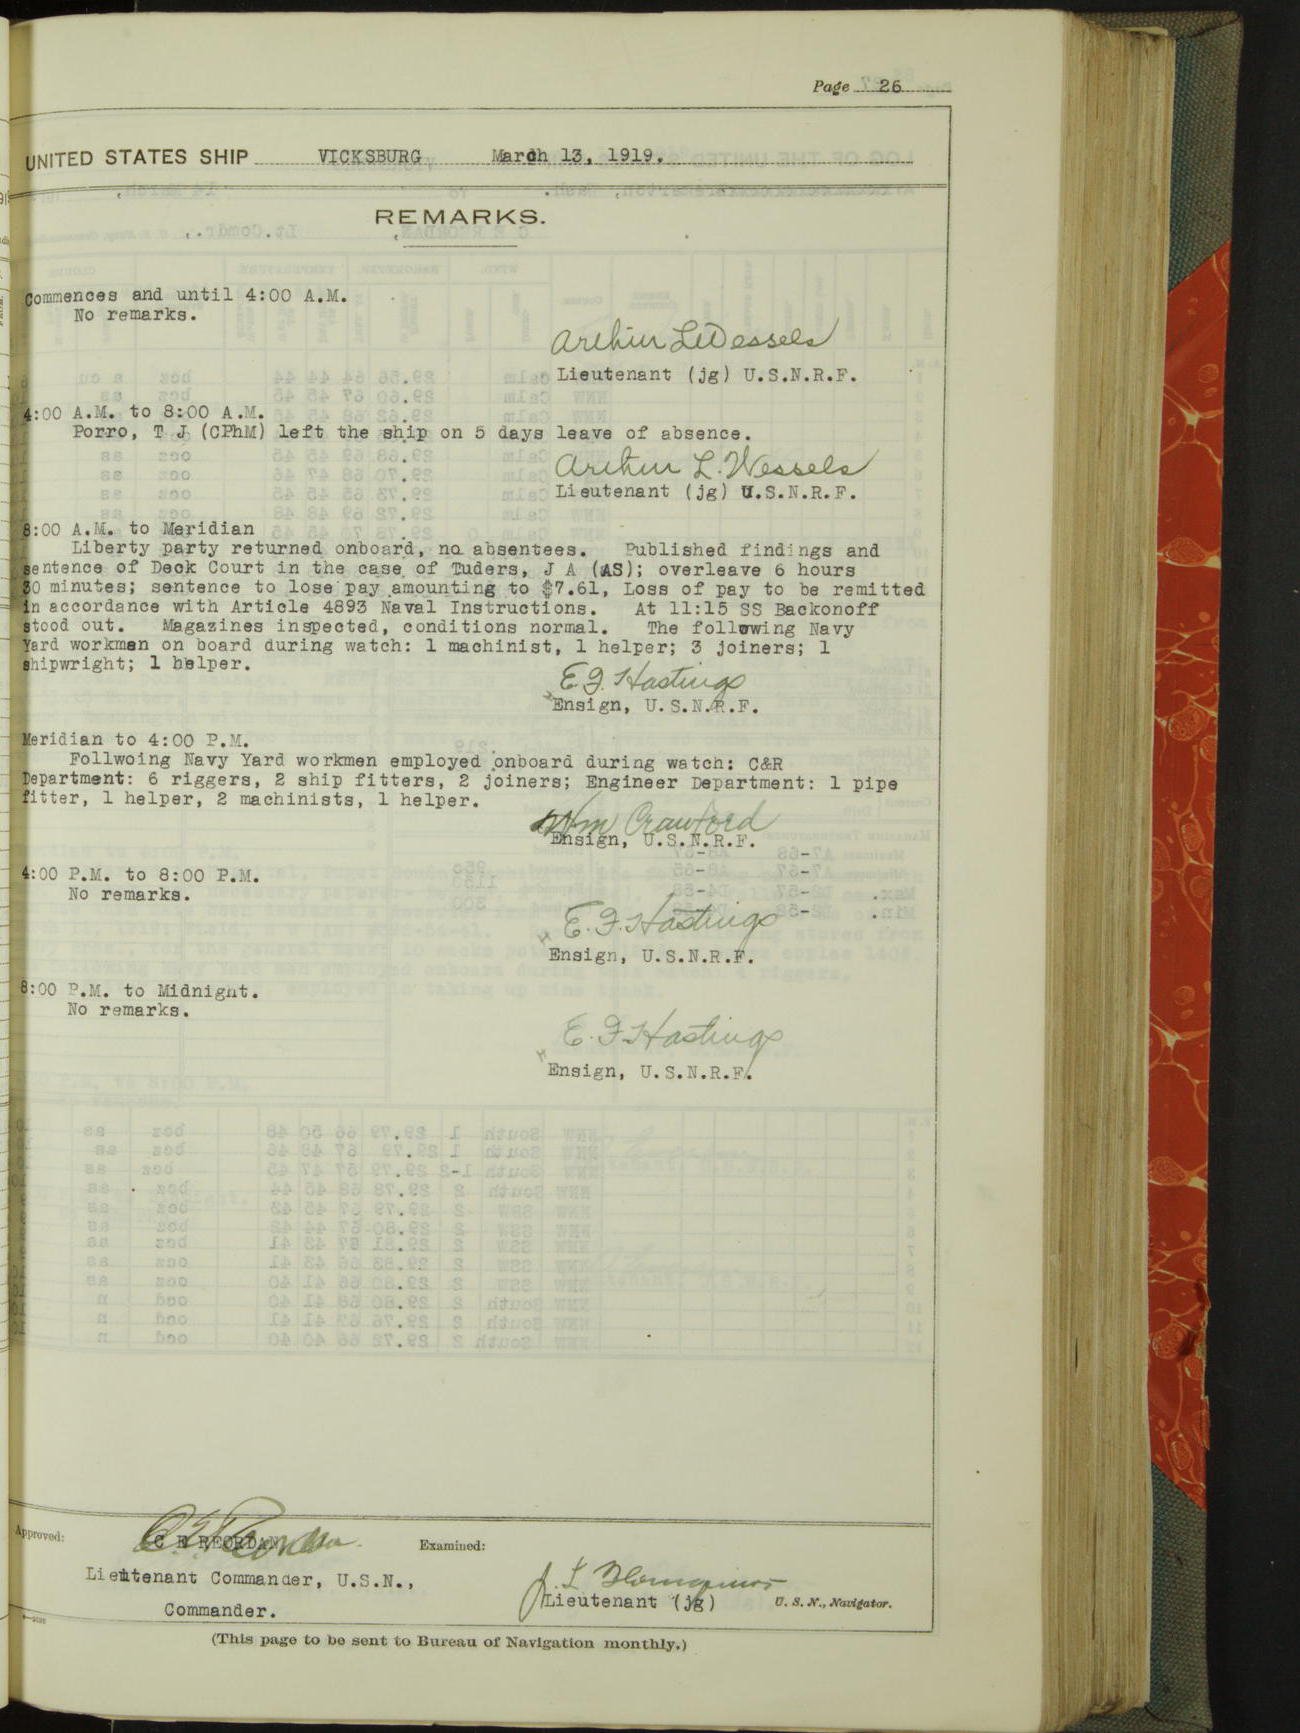 Page 26
UNITED STATES SHIP VICKSBURG March 13, 1919.
REMARKS.
Commences and until 4:00 A.M.
No remarks.
Arthur L Wessels
Lieutenant (jg) U.S.N.R.F.
4:00 A.M. to 8:00 A.M.
Porro, T J (CPhM) left the ship on 5 days leave of absence.
Arthur L. Wessels
Lieutenant (jg) U.S.N.R.F.
8:00 A.M. to Meridian
Liberty party returned onboard, no absentees. Published findings and
sentence of Deck Court in the case of Tuders, J A (AS); overleave 6 hours
30 minutes; sentence to lose pay amounting to $7.61, Loss of pay to be remitted
in accordance with Article 4893 Naval Instructions. At 11:15 SS Backonoff
stood out. Magazines inspected, conditions normal. The following Navy
Yard workmen on board during watch: 1 machinist, 1 helper; 3 joiners; 1
shipwright; 1 helper.
E.F. Hastings
Ensign, U.S.N.R.F.
Meridian to 4:00 P.M.
Follwoing Navy Yard workmen employed onboard during watch: C&R
Department: 6 riggers, 2 ship fitters, 2 joiners; Engineer Department: 1 pipe
fitter, 1 helper, 2 machinists, 1 helper.
Wm Crawford
Ensign, U.S.N.R.F.
4:00 P.M. to 8:00 P.M.
No remarks.
E. F. Hastings
Ensign, U.S.N.R.F.
8:00 P.M. to Midnight.
No remarks.
E. F. Hastings
Ensign, U.S.N.R.F.
Approved:
C E REORDAN
Examined:
Lieutenant Commander, U.S.N.,
Commander.
Lieutenant (jg) U. S. N., Navigator.
(This page to be sent to Bureau of Navigation monthly.)